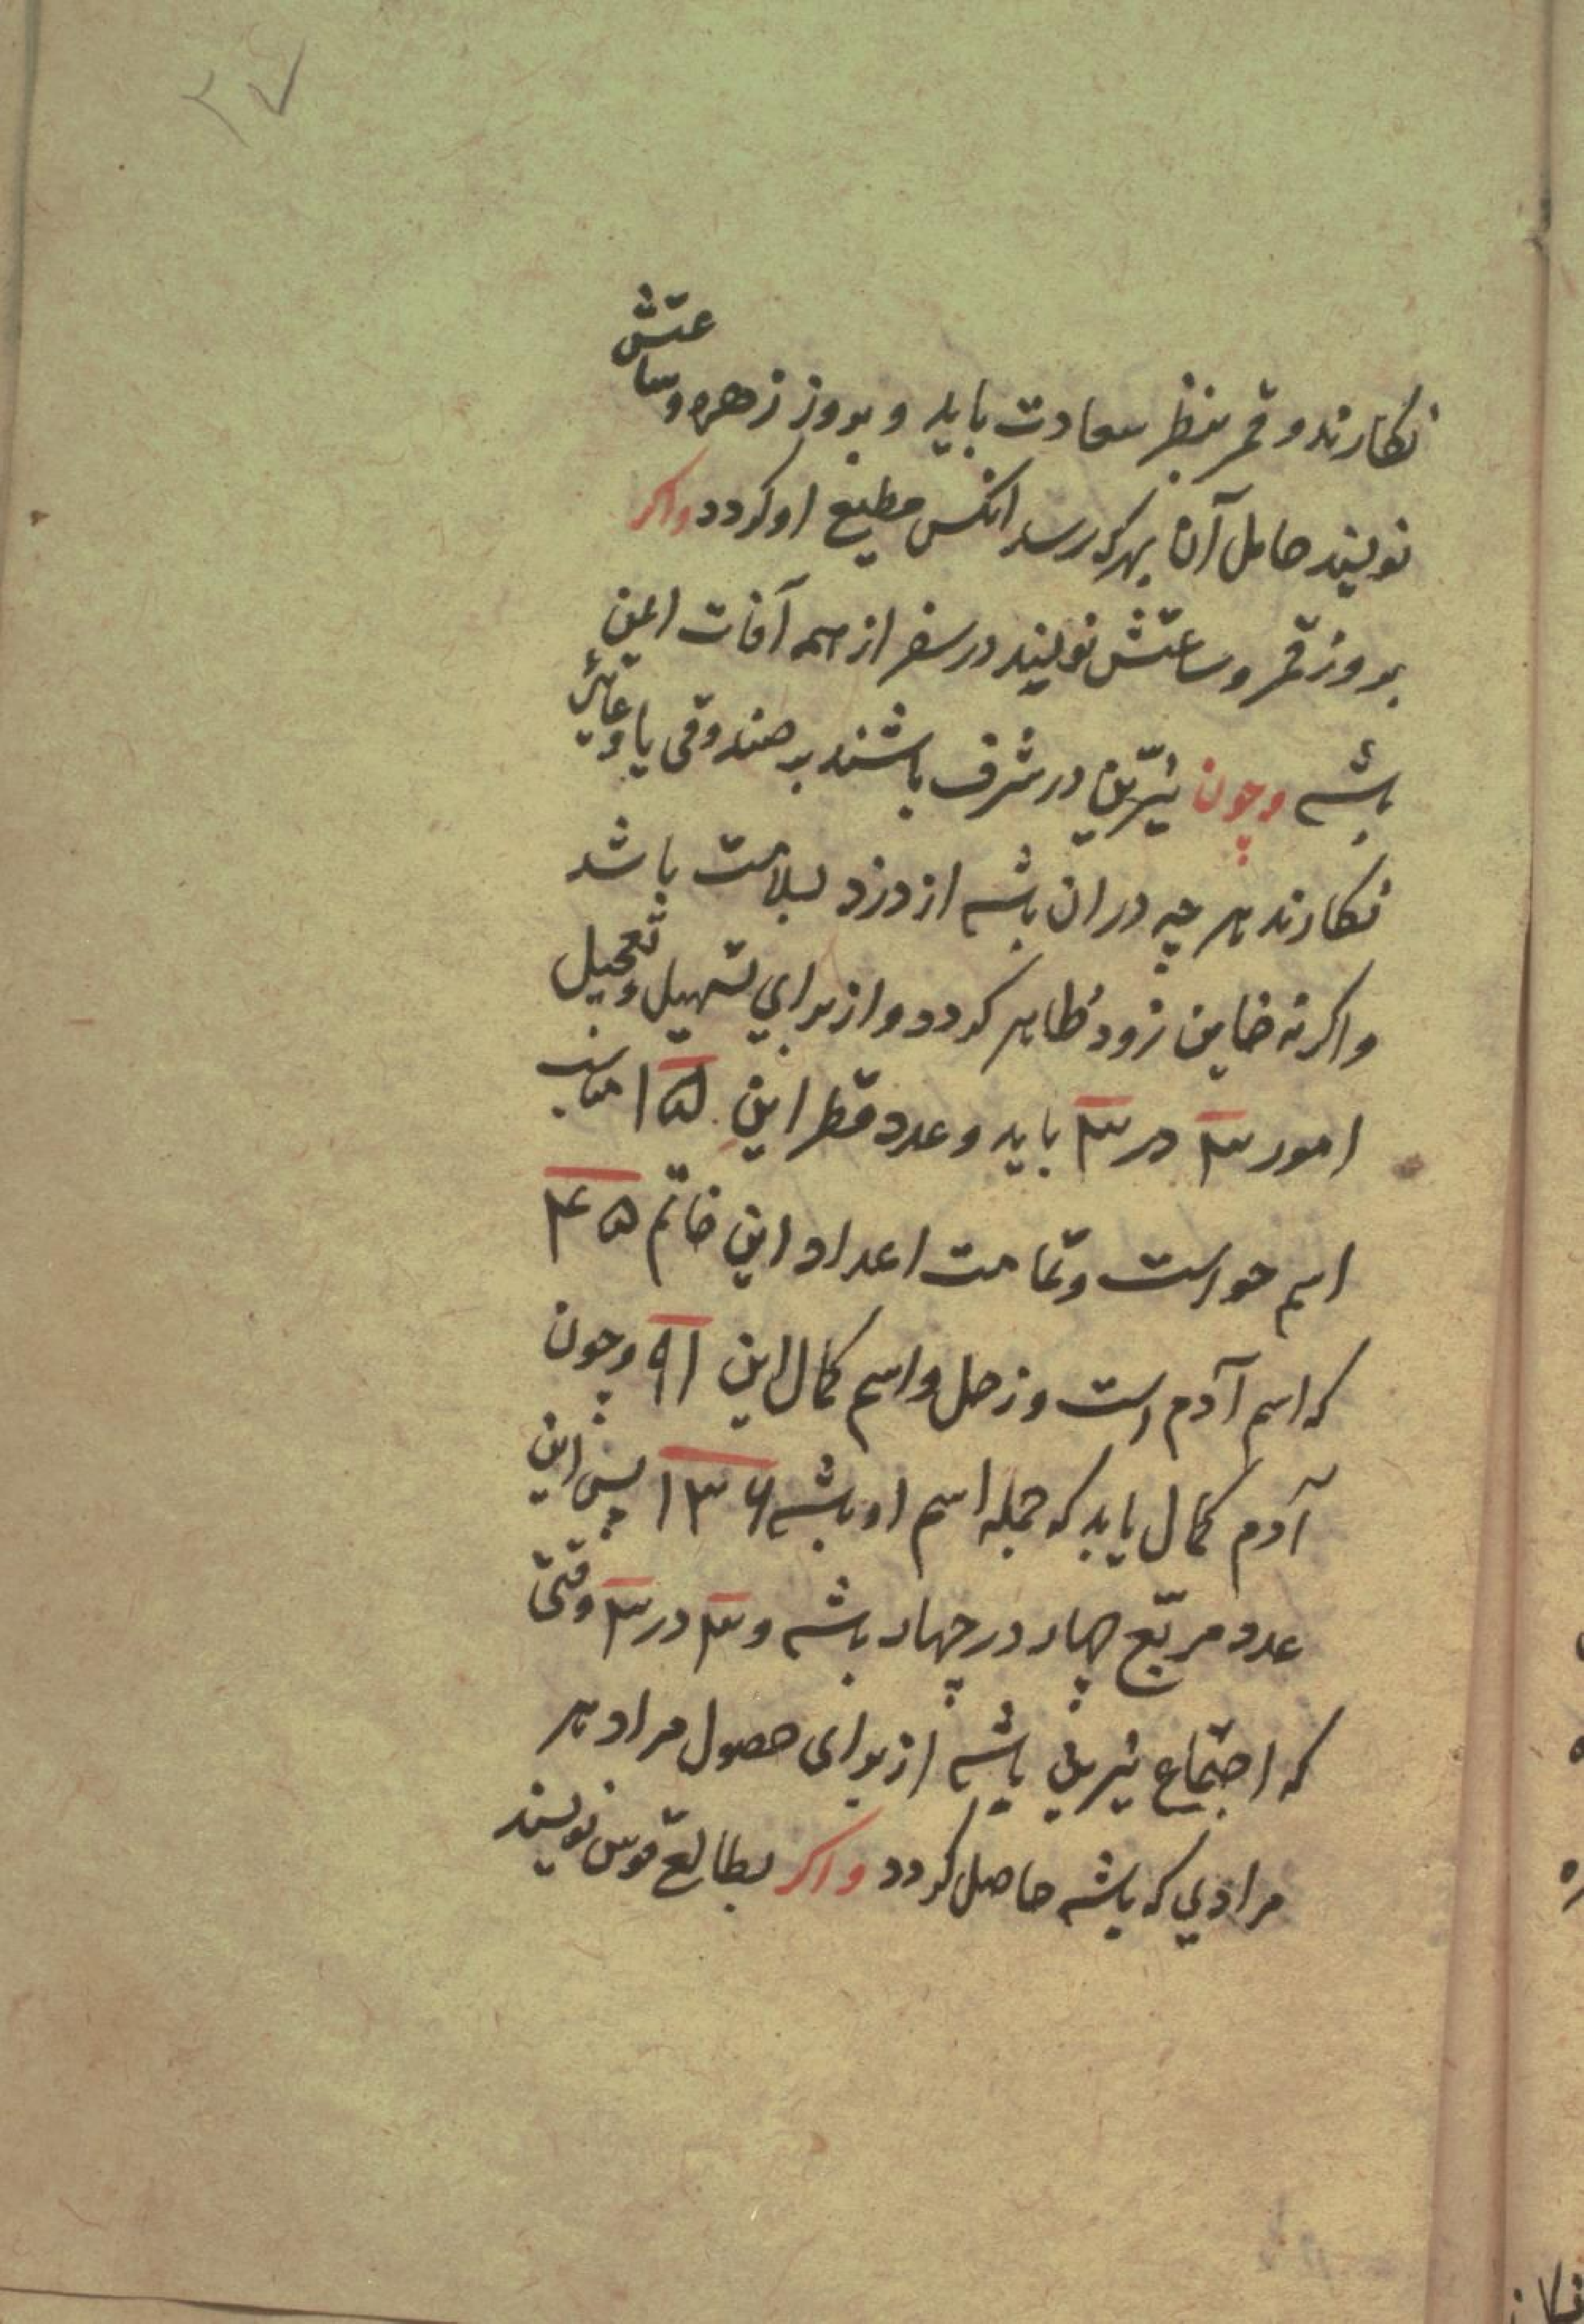 نکارند و قمر بنظر سعادت باید و بروز زهره و ساعتش
نویسند حامل آن بهرکه رسد انکس مطیع او کردد واکر
بروز قمر و ساعتش نویسند در سفر از همه آفات ایمن
باشد وچون نیّرین در شرف باشند بر صندوقی یا
نکارند هر چه در ان باشد از دزد بسلامت باشد
واکرنه خاین زود ظاهر کردد و از برای تسهیل وتعجیل
امور ۳ در ۳ باید و عدد قطر این ۱۵ مناسب
اسم حواست وتمامت اعداد این خاتم ۴۵
که اسم آدم است و زحل و اسم کمال این ۹۱ وچون
آدم کمال یابد که جمله اسم او باشد ۱۳۶ پس این
عدد مربّع چهار در چهار باشد و ۳ در ۳ وقتی
که اجتماع نیرین باشد از برای حصول مراد هر
مرادی که باشد حاصل کردد واکر بطالع قوس نویسند